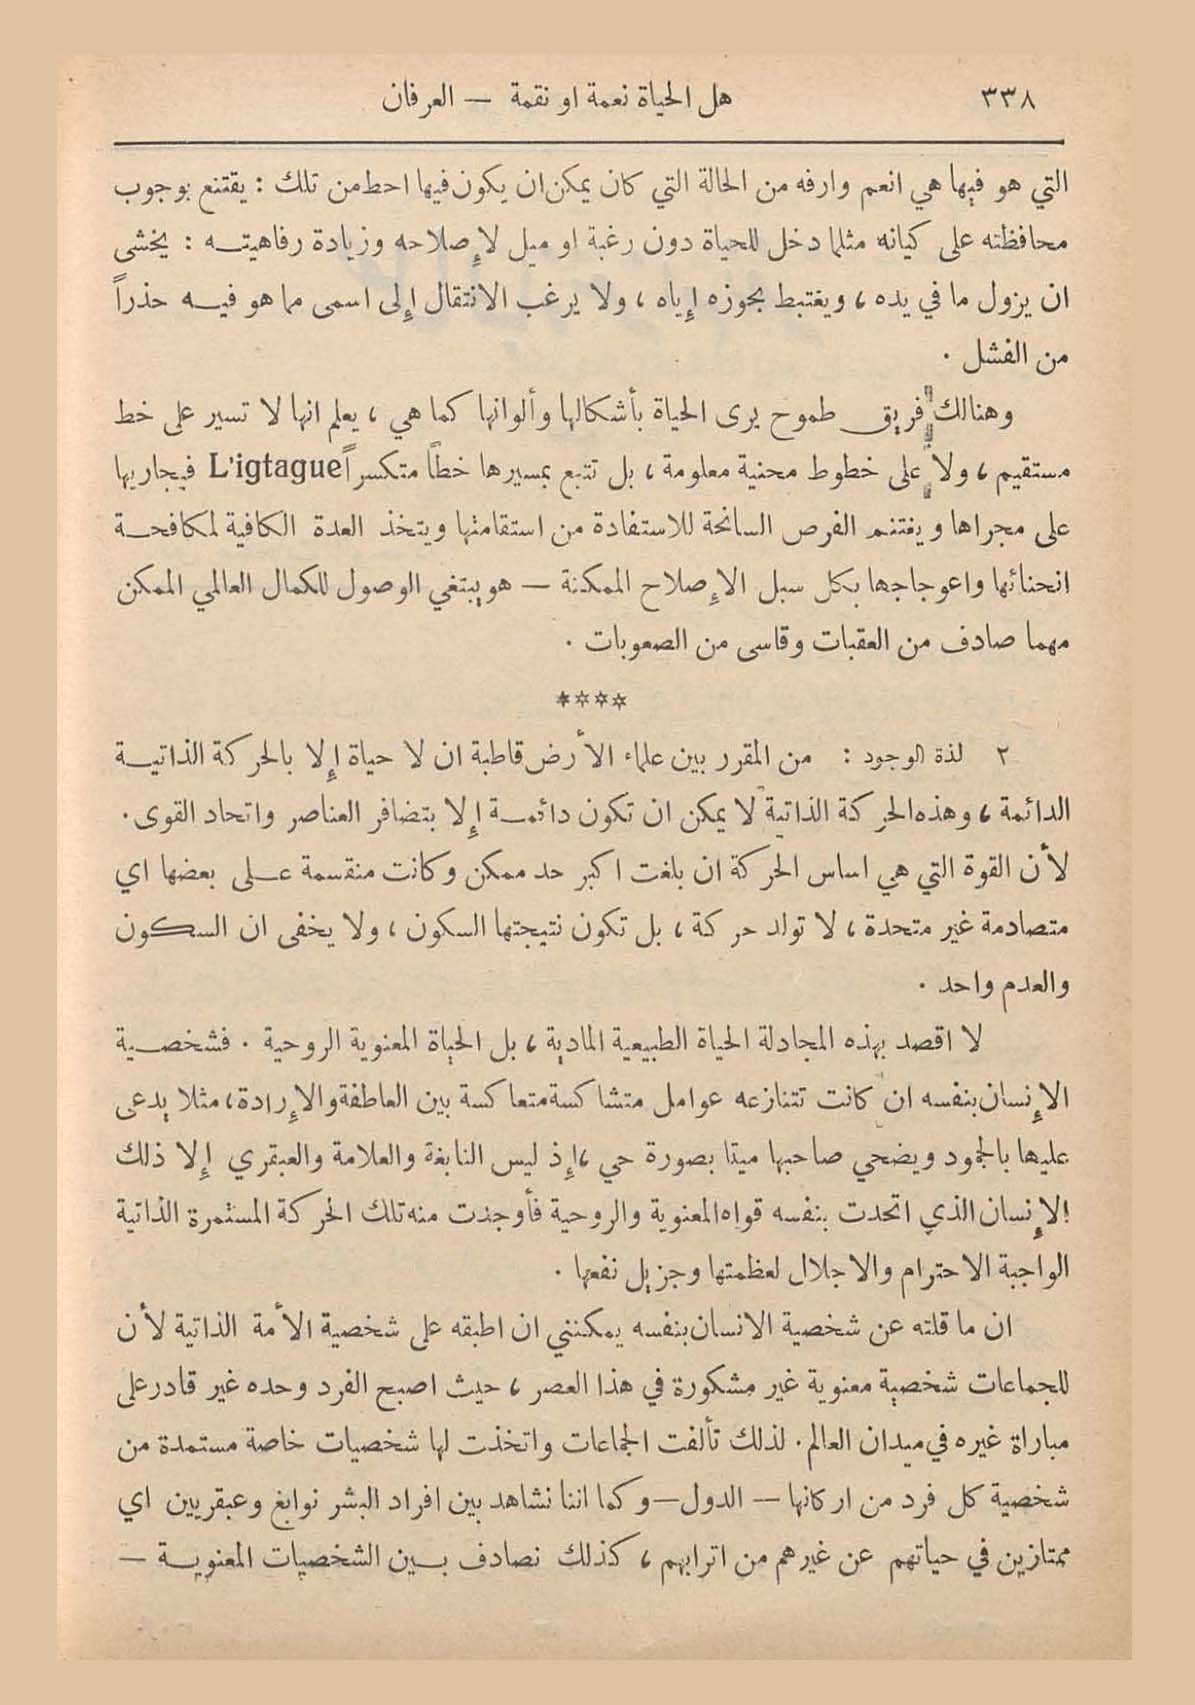 ٣٣٨ هل الحياة نعمة او نقمة — العرفان
التي هو فيها هي انعم وارفه من الحالة التي كان يمكن ان يكون فيها احط من تلك : يقتنع بوجوب
محافظته على كيانه مثلما دخل للحياة دون رغبة او ميل لإصلاحه وزيادة رفاهيته : يخشى
ان يزول ما في يده ، ويغتبط بحوزه إياه ، ولا يرغب الانتقال إلى اسمى مما هو فيه حذراً
من الفشل .
وهنالك فريق طموح يرى الحياة بأشكالها وألوانها كما هي ، يعلم انها لا تسير على خط
مستقيم ، ولا على خطوط محنية معلومة ، بل تتبع بمسيرها خطاً متكسراً L'igtague فيجاريها
على مجراها ويغتنم الفرص السانحة للاستفادة من استقامتها ويتخذ العدة الكافية لمكافحة
انحنائها واعوجاجها بكل سبل الإصلاح الممكنة — هو يبتغي الوصول للكمال العالمي الممكن
مهما صادف من العقبات وقاسى من الصعوبات .
****
٢ لذة الوجود : من المقرر بين علماء الأرض قاطبة ان لا حياة إلا بالحركة الذاتية
الدائمة ، وهذه الحركة الذاتية لا يمكن ان تكون دائمة إلا بتضافر العناصر واتحاد القوى .
لأن القوة التي هي اساس الحركة ان بلغت اكبر حد ممكن وكانت منقسمة على بعضها اي
متصادمة غير متحدة ، لا تولد حركة ، بل تكون نتيجتها السكون ، ولا يخفى ان السكون
والعدم واحد .
لا اقصد بهذه المجادلة الحياة الطبيعية المادية ، بل الحياة المعنوية الروحية . فشخصية
الإنسان بنفسه ان كانت تتنازعه عوامل متشاكسة متعاكسة بين العاطفة والإرادة ، مثلا يدعى
عليها بالجمود ويضحي صاحبها ميتا بصورة حي ، إذ ليس النابغة والعلامة والعبقري إلا ذلك
الإنسان الذي اتحدت بنفسه قواه المعنوية والروحية فأوجدت منه تلك الحركة المستمرة الذاتية
الواجبة الاحترام والاجلال لعظمتها وجزيل نفعها .
ان ما قلته عن شخصية الانسان بنفسه يمكنني ان اطبقه على شخصية الأمة الذاتية لأن
للجماعات شخصية معنوية غير مشكورة في هذا العصر ، حيث اصبح الفرد وحده غير قادر على
مباراة غيره في ميدان العالم . لذلك تألفت الجماعات واتخذت لها شخصيات خاصة مستمدة من
شخصية كل فرد من اركانها — الدول — وكما اننا نشاهد بين افراد البشر نوابغ وعبقريين اي
ممتازين في حياتهم عن غيرهم من اترابهم ، كذلك نصادف بين الشخصيات المعنوية —